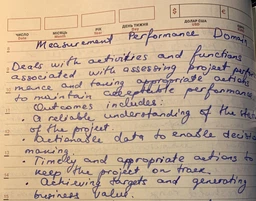 $ €
ЧИСЛО МІСЯЦЬ РІК ДЕНЬ ТИЖНЯ ДОЛАР США
Measurement Performance Domain
Deals with activities and functions
associated with assessing project perfor
mance and taking appropriate actions
to maintain acceptable performance
Outcomes includes:
• a reliable understanding of the
of the project.
• Actionable data to enable decisio
making.
• Timely and appropriate actions to
keep the project on track.
• achieving targets and generating
business value.